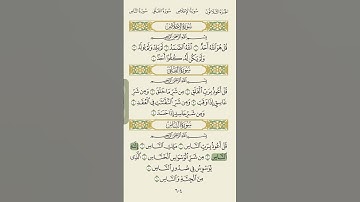 الجزء الثلاثون سورة الإخلاص سورة الفلق سورة الناس
سورة الإخلاص
بسم الله الرحمن الرحيم
قل هو الله أحد ١ الله الصمد ٢ لم يلد ولم يولد ٣
ولم يكن له كفوا أحد ٤
سورة الفلق
بسم الله الرحمن الرحيم
قل أعوذ برب الفلق ١ من شر ما خلق ٢ ومن شر
غاسق إذا وقب ٣ ومن شر النفاثات في العقد ٤
ومن شر حاسد إذا حسد ٥
سورة الناس
بسم الله الرحمن الرحيم
قل أعوذ برب الناس ١ ملك الناس ٢ إله
الناس ٣ من شر الوسواس الخناس ٤ الذي
يوسوس في صدور الناس ٥
من الجنة والناس ٦
٦٠٤